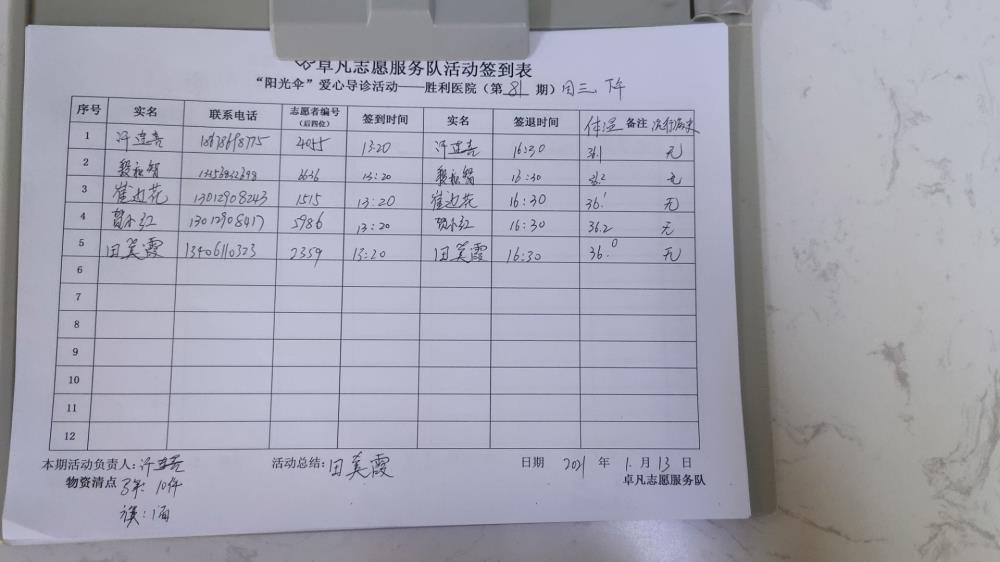 卓凡志愿服务队活动签到表
“阳光伞”爱心导诊活动——胜利医院（第 81 期）周三 下午
序号 实名 联系电话 志愿者编号（后四位） 签到时间 实名 签退时间 体温 备注 流行病史
1 许连喜 4055 13:20 许连喜 16:30 36.1 无
2 6636 13:20 16:30 36.2 无
3 崔边花 13012908243 1515 13:20 崔边花 16:30 36.1 无
4 贺小红 13012908417 5986 13:20 贺小红 16:30 36.2 无
5 田英霞 13406110323 2359 13:20 田英霞 16:30 36.0 无
6
7
8
9
10
11
12
本期活动负责人：许连喜 活动总结：田英霞 日期 2021 年 1 月 13 日
物资清点 10件 卓凡志愿服务队
旗：1面